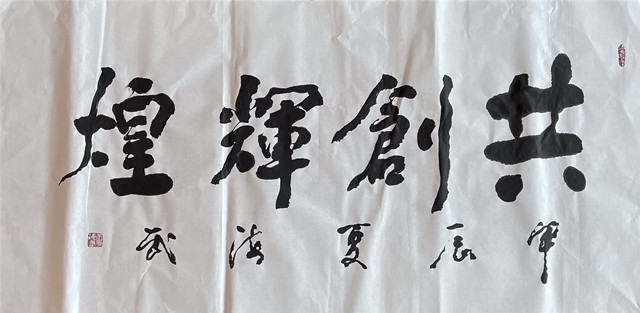 共創輝煌
甲辰夏海武